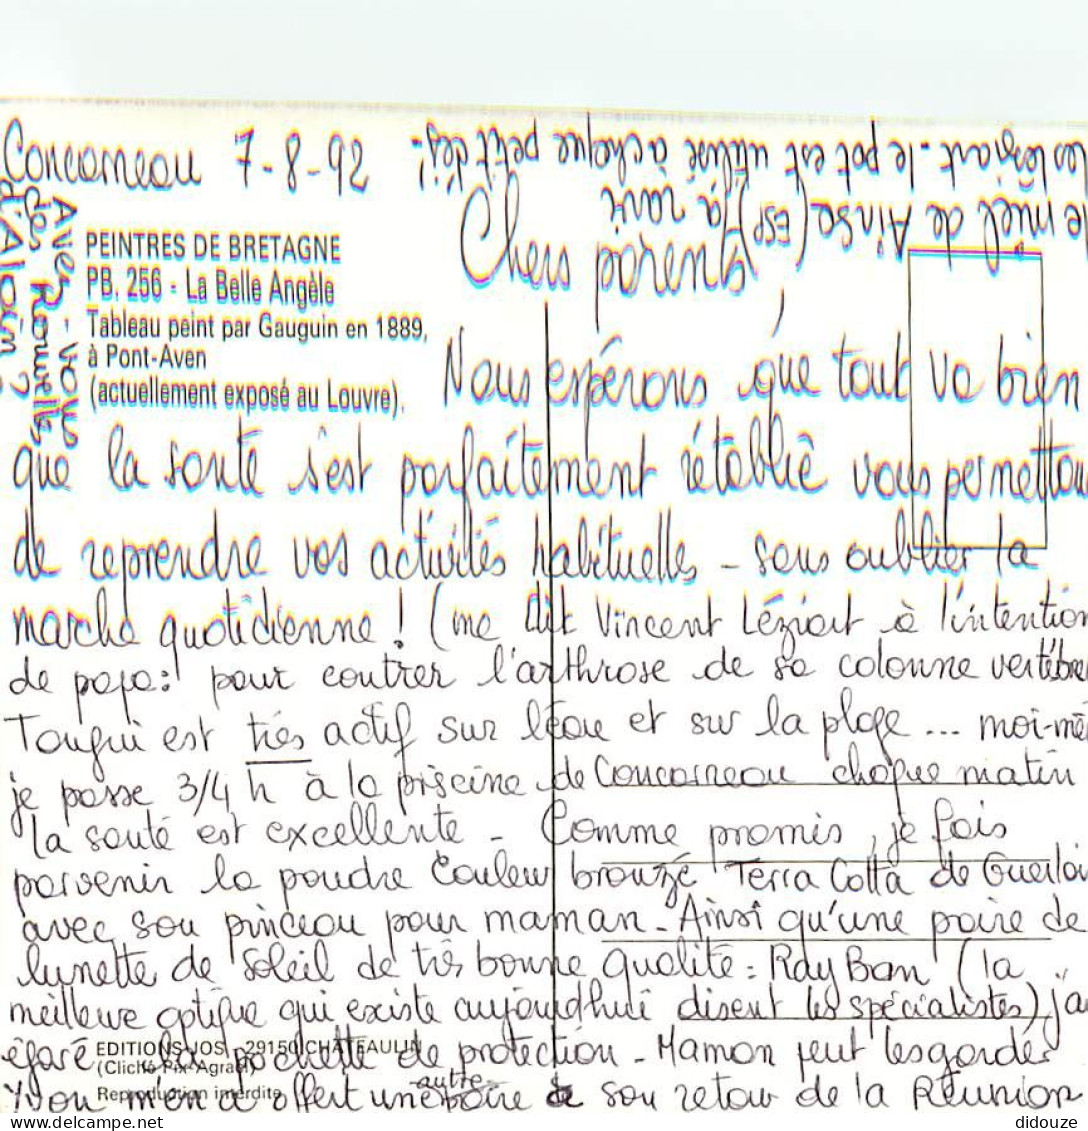 Concarneau 7-8-92
Chers parents,
PEINTRES DE BRETAGNE
PB. 256 - La Belle Angèle
Tableau peint par Gauguin en 1889,
à Pont-Aven
(actuellement exposé au Louvre).
Nous espérons que tout va bien
que la santé s'est parfaitement rétablie vous permettant
de reprendre vos activités habituelles - sans oublier la
marche quotidienne ! (me dit Vincent Léziart à l'intention
de papa: pour contrer l'arthrose de sa colonne vertébra
Tangui est très actif sur l'eau et sur la plage ... moi-mê
je passe 3/4 h à la piscine de Concarneau chaque matin
la santé est excellente - Comme promis, je fais
parvenir la poudre couleur bronzé Terra Cotta de Guerlai
avec son pinceau pour maman - Ainsi qu'une paire de
lunette de soleil de très bonne qualité : Ray Ban (la
meilleure optique qui existe aujourd'hui disent les spécialistes) j'ai
égaré la pochette de protection - Maman peut les garder
Yvon m'en a offert une autre paire à son retour de la Réunion
EDITIONS JOS - 29150 CHATEAULIN
(Cliché Pix-Agraci)
Reproduction interdite
Avez-vous
des nouvelles
d'Alain ?
le miel de Ainsa (ESP) a ravi
les Léziart - le pot est utilisé à chaque petit déj !
didouze